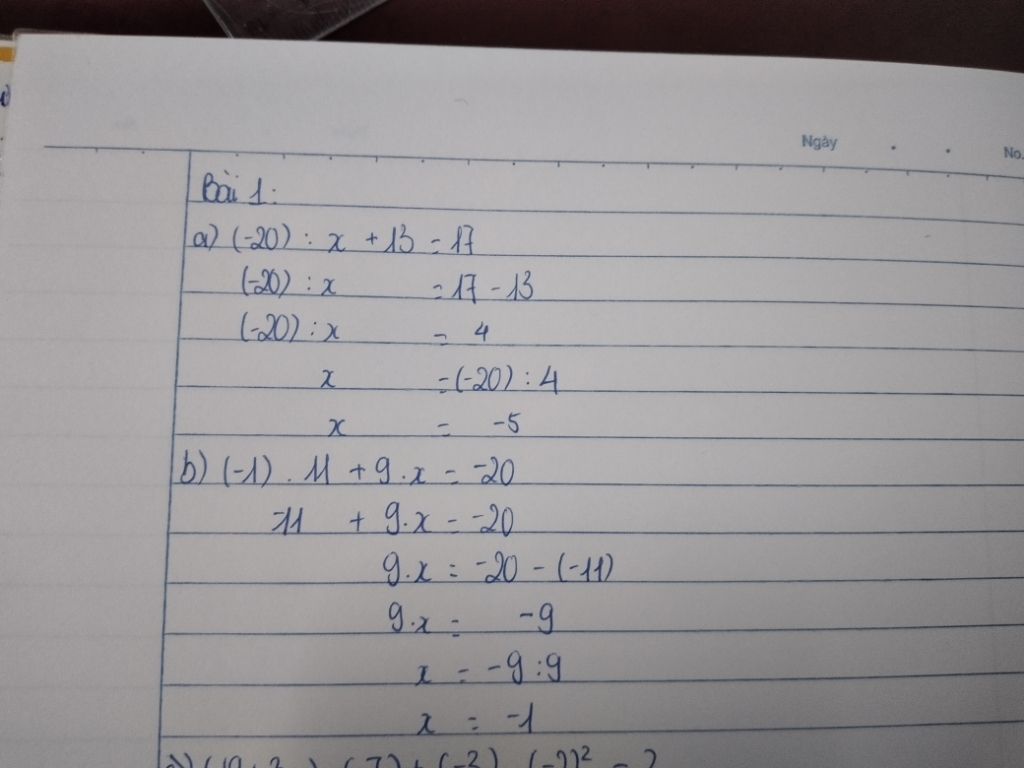 Ngày . . No.
Bài 1:
a) (-20) : x + 13 = 17
(-20) : x = 17 - 13
(-20) : x = 4
x = (-20) : 4
x = -5
b) (-1) . 11 + 9.x = -20
-11 + 9.x = -20
9.x = -20 - (-11)
9.x = -9
x = -9 : 9
x = -1